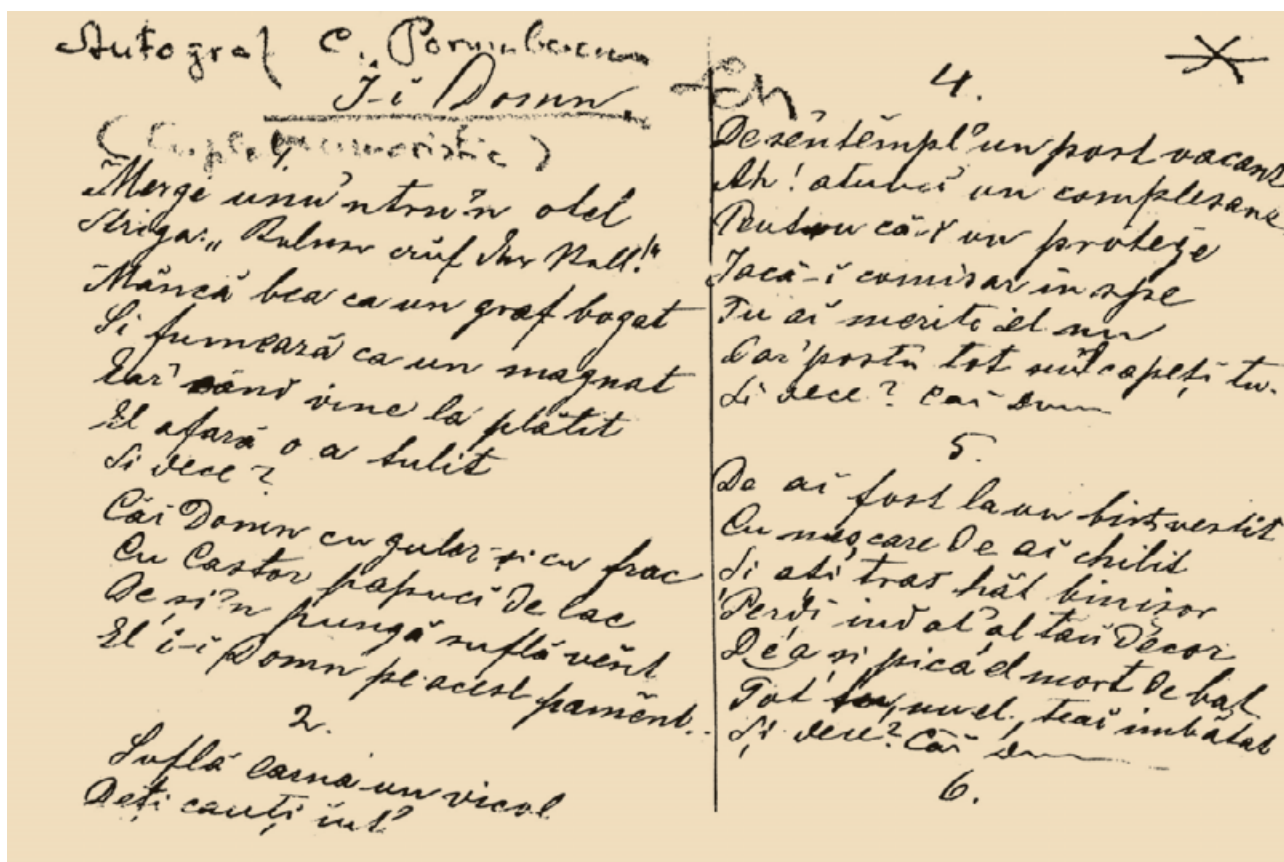 Autograf C. Porumbescu
I-i Domn.
(Cuplet umoristic)
1.
Merge unu'ntru'n otel
Striga: „
Mâncă bea ca un graf bogat
Si fumeară ca un magnat
Iar' când vine la plătit
El afară o a tulit
Si dece?
Căi Domn cu guler și cu frac
Cu Castor papuci de lac
De și'n pungă suflă vĕnt
El i-i Domn pe acest pamĕnt.
2.
Suflă earna un vicol
Deți cauți
4.
De sĕntĕmpl'un post vacant
Ah! atunci un complesant
Pentru că-i un proteje
Iacă-i comisar in spe
Tu ai merite el nu
Dar' postu tot nu'l capeți tu.
Si dece? Căi Dom
5.
De ai fost la un birt vestit
Cu de ai chilit
Si ați tras hăt binișor
Perdi indat'al tau Decor
De a și pica el mort de bat
Tot tu, nu el, teai imbătat
Și dece? Căi Dom
6.